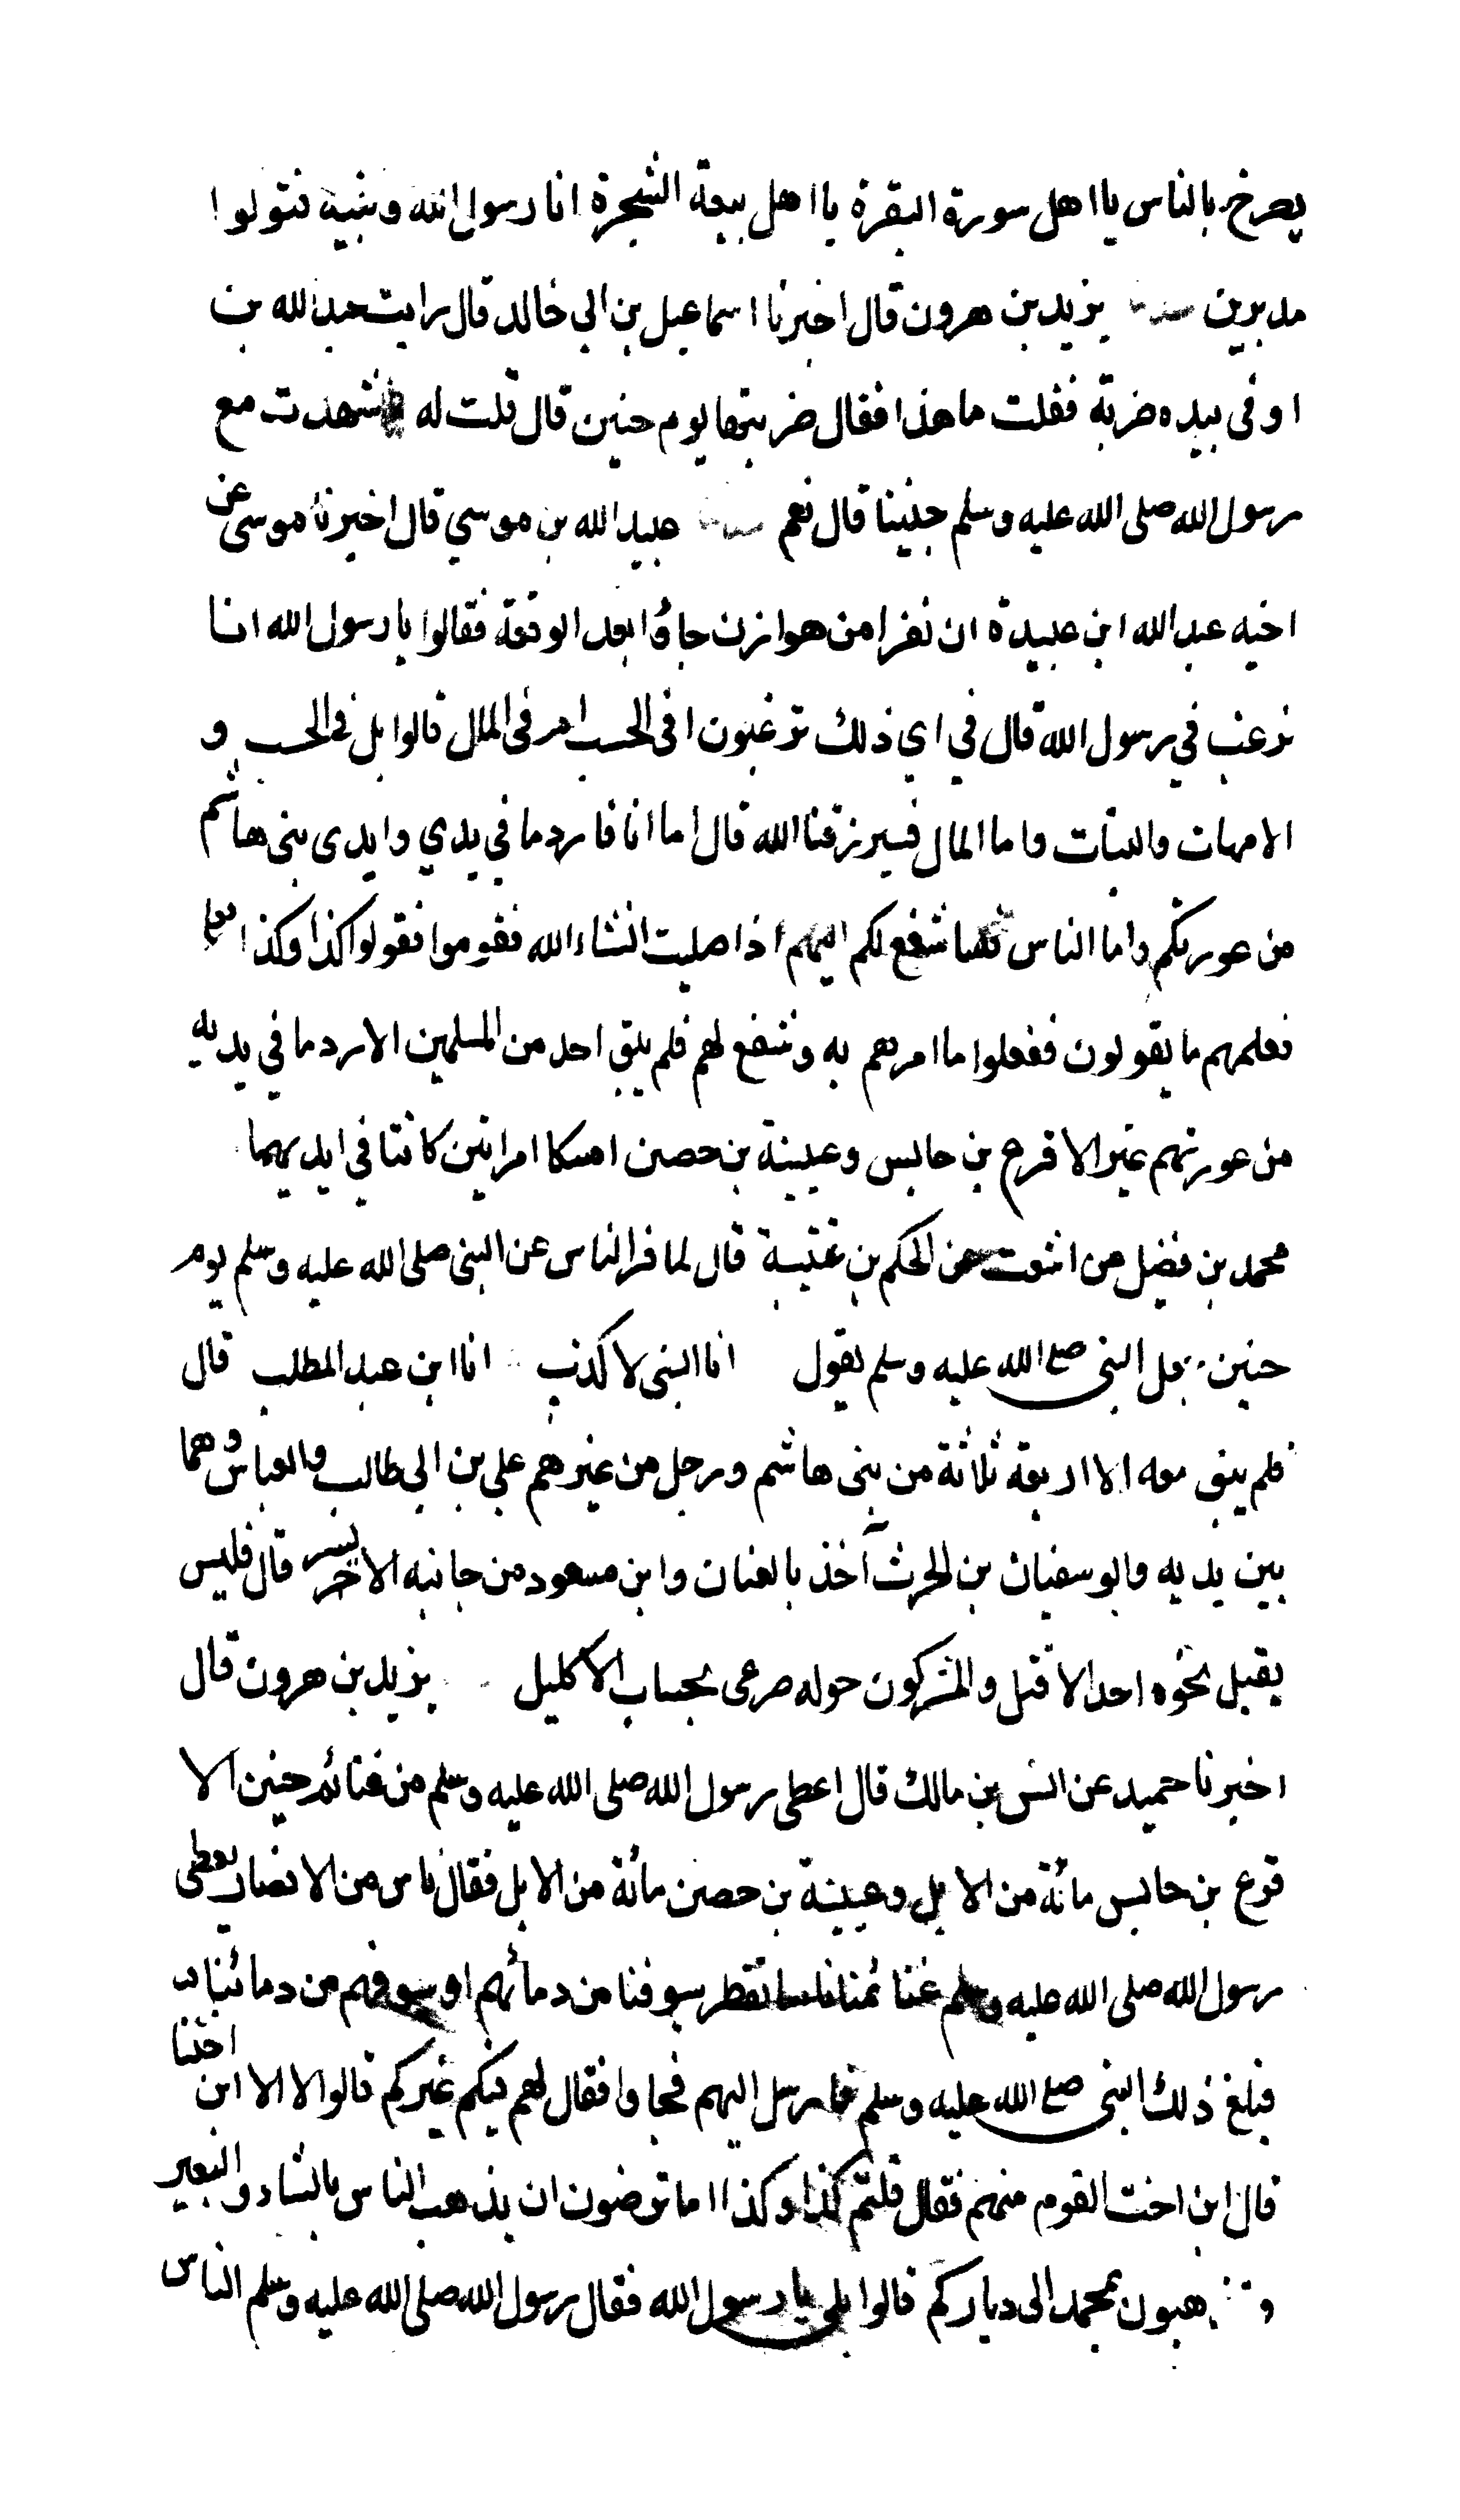 يصرخ بالناس يا اهل سورة البقرة يا اهل بيعة الشجرة انا رسول الله ونبيه فتولوا
مدبرين حدثنا يزيد بن هرون قال اخبرنا اسماعيل بن ابي خالد قال رايت عبد الله بن
اوفى بيده ضربة فقلت ما هذا فقال ضربتها يوم حنين قال قلت له شهدت مع
رسول الله صلى الله عليه وسلم حنينا قال نعم حدثنا عبيد الله بن موسي قال اخبرنا موسى عن
اخيه عبد الله ابن عبيدة ان نفرا من هوازن جاؤا بعد الوقعة فقالوا يا رسول الله انا
نرغب في رسول الله قال في اي ذلك ترغبون افى الحسب ام فى المال قالوا بل فى الحسب و
الامهات والبنات واما المال فسيرزقنا الله قال اما انا فارد ما في يدي وايدى بنى هاشم
من عورتكم واما الناس فساشفع لكم اليهم اذا صليت انشاء الله فقوموا فقولوا كذا وكذا
فعلمهم ما يقولون ففعلوا ما امرهم به وشفع لهم فلم يبق احد من المسلمين الا رد ما في يديه
من عورتهم غير الاقرع بن حابس وعيينة بن حصن امسكا امراتين كانتا في ايديهما
محمد بن فضيل عن اشعث عن الحكم بن عتيبة قال لما فر الناس عن النبى صلى الله عليه وسلم يوم
حنين جعل النبى صلع الله عليه وسلم يقول انا النبى لا كذب انا ابن عبد المطلب قال
فلم يبق معه الا اربعة ثلاثة من بنى هاشم ورجل من غيرهم علي بن ابي طالب والعباس وهما
بين يديه وابو سفيان بن الحرث آخذ بالعنان وابن مسعود من جانبه الايسر قال فليس
يقبل نحوه احد الا قتل والمشركون حوله صرعى بحساب الاكليل يزيد بن هرون قال
اخبرنا حميد عن انس بن مالك قال اعطى رسول الله صلى الله عليه وسلم من غنائم حنين الا
قرع بن حابس مائة من الابل وعيينة بن حصن مائة من الابل فقال ناس من الانصار يعطى
رسول الله صلى الله عليه وسلم غنائمنا ناسا تقطر سيوفنا من دمائهم او سيوفهم من دمائنا
فبلغ ذلك النبى صلع الله عليه وسلم فارسل اليهم فجاوا فقال لهم فيكم غيركم قالوا لا الا ابن اختنا
قال ابن اخت القوم منهم فقال قلتم كذا وكذا اما ترضون ان يذهب الناس بالشاء والبعير
وتذهبون بمحمد الى دياركم قالوا بلى يا رسول الله فقال رسول الله صلى الله عليه وسلم الناس